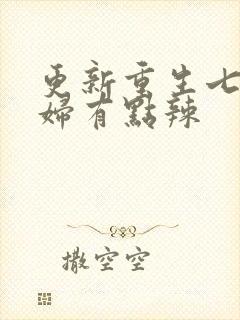 更新重生七
婦有點辣
撒空空